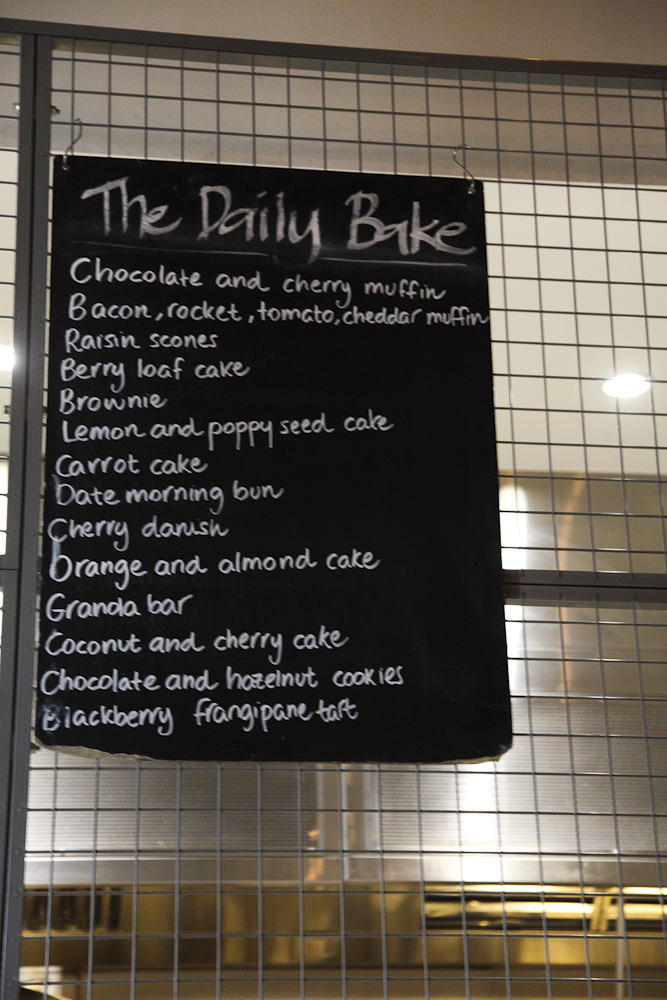 The Daily Bake
Chocolate and cherry muffin
Bacon, rocket, tomato, cheddar muffin
Raisin scones
Berry loaf cake
Brownie
Lemon and poppy seed cake
Carrot cake
Date morning bun
Cherry danish
Orange and almond cake
Granola bar
Coconut and cherry cake
Chocolate and hazelnut cookies
Blackberry frangipane tart